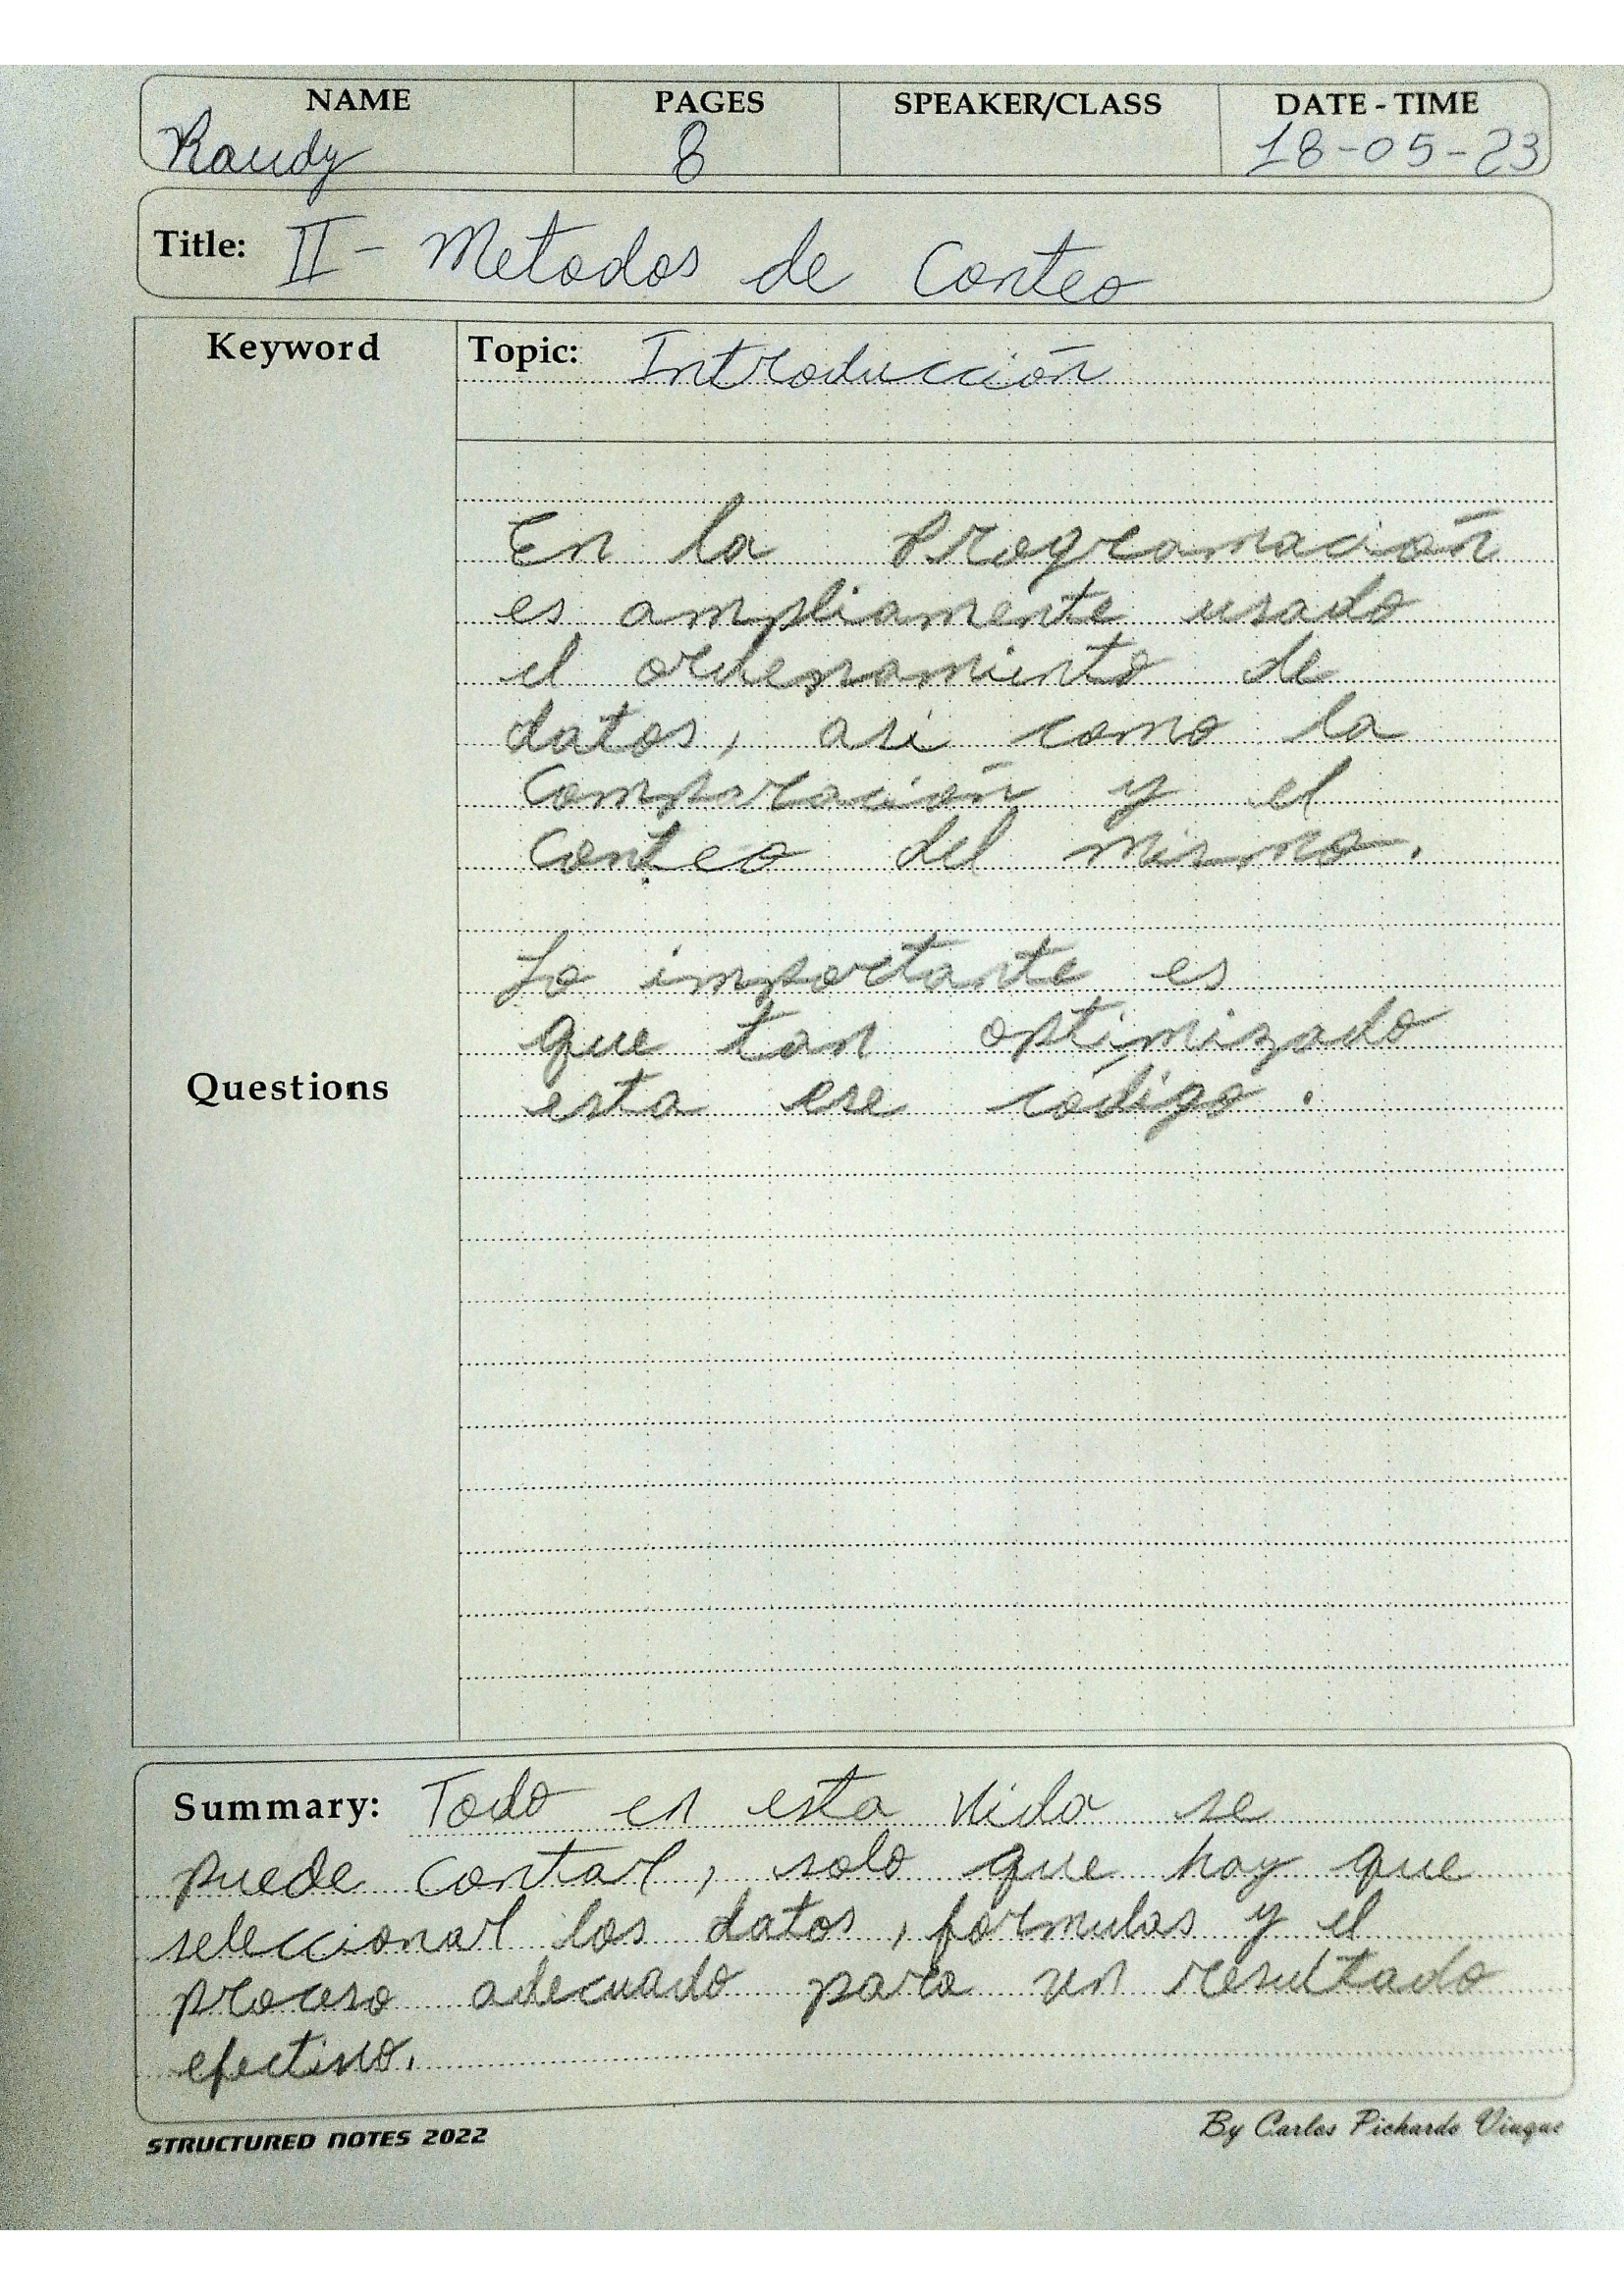 NAME PAGES SPEAKER/CLASS DATE - TIME
Raudy 8 18-05-23
Title: II - Metodos de Conteo
Keyword Topic: Introducción
En la Programación
es ampliamente usado
el ordenamiento de
datos, asi como la
Comparación y el
Conteo del mismo.
Lo importante es
que tan optimizado
Questions esta ese código.
Summary: Todo en esta vida se
puede contar, solo que hay que
seleccionar los datos, formulas y el
proceso adecuado para un resultado
efectivo.
STRUCTURED NOTES 2022 By Carlos Pichardo Viuque